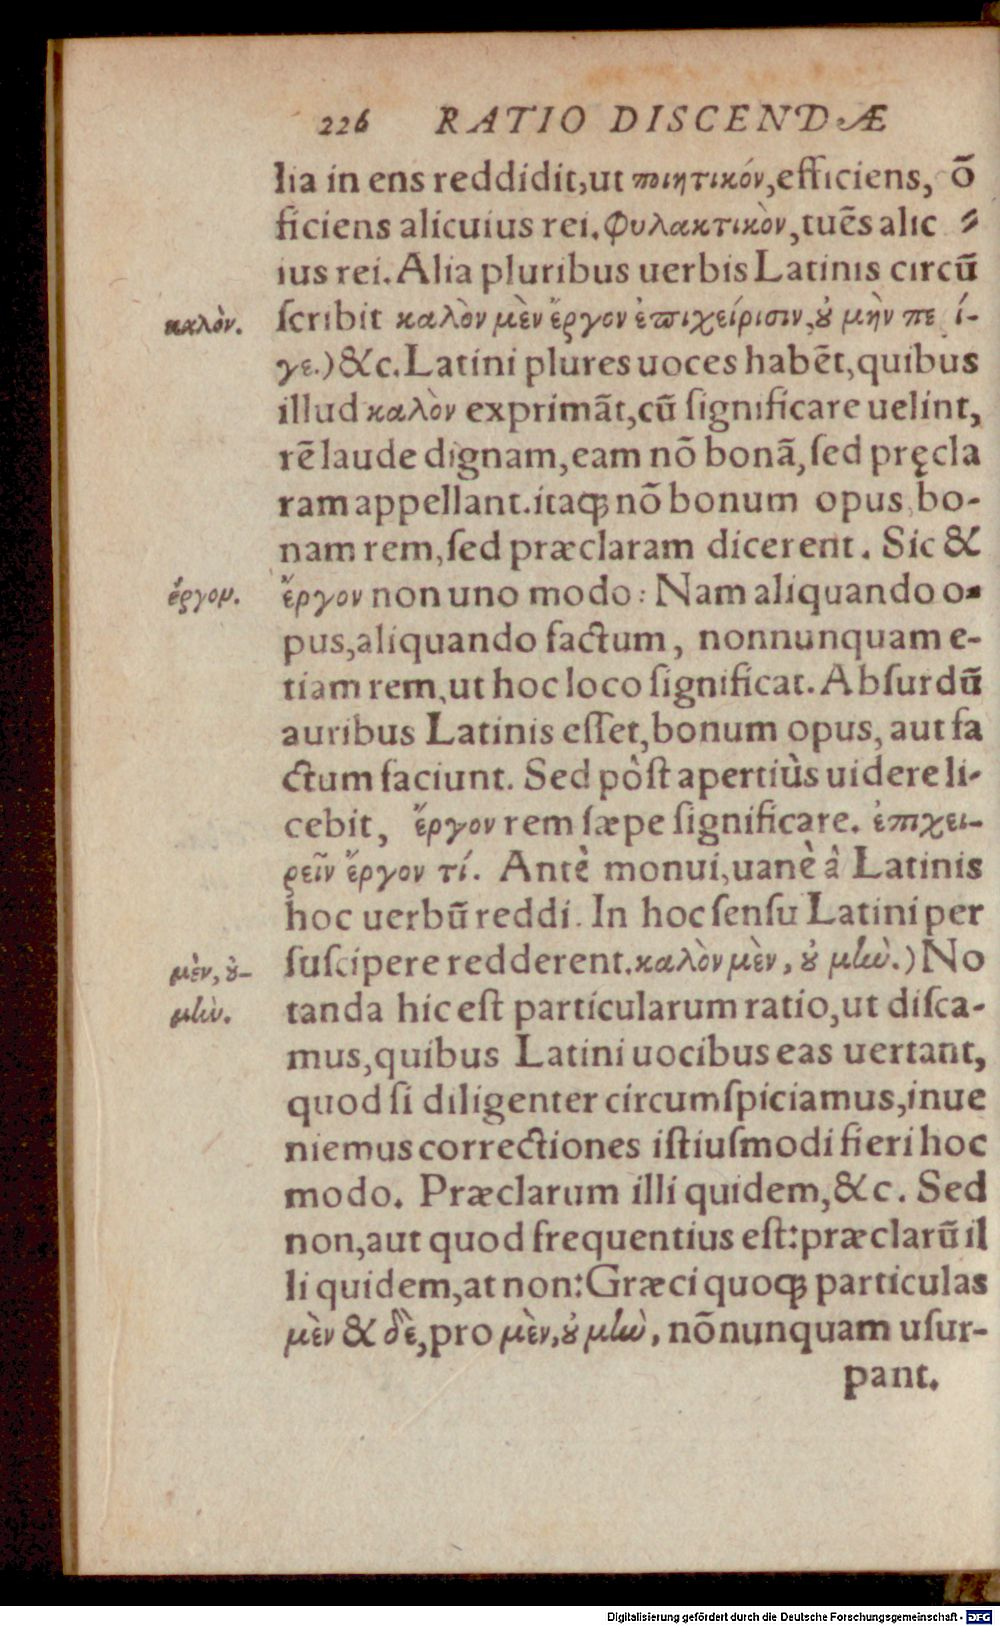 226 RATIO DISCENDÆ
lia in ens reddidit,ut ποιητικόν,efficiens, õ
ficiens alicuius rei. φυλακτικὸν,tuẽs alic
ius rei. Alia pluribus uerbis Latinis circũ
καλὸν.
ſcribit καλὸν μὲν ἔργον ἐπιχείρισιν,ȣ μὴν
γε.) &c. Latini plures uoces habẽt,quibus
illud καλὸν exprimãt,cũ ſignificare uelint,
rẽ laude dignam,eam nõ bonã,ſed pręcla
ram appellant.itaqꝫ nõ bonum opus,bo-
nam rem,ſed præclaram dicerent. Sic &
ἔργον.
ἔργον non uno modo: Nam aliquando o-
pus,aliquando factum, nonnunquam e-
tiam rem,ut hoc loco ſignificat. Abſurdũ
auribus Latinis eſſet,bonum opus, aut fa
ctum faciunt. Sed pòſt apertiùs uidere li-
cebit, ἔργον rem ſæpe ſignificare. ἐπιχει-
ρεῖν ἔργον τί. Antè monui,uanè â Latinis
hoc uerbũ reddi. In hoc ſenſu Latini per
μὲν, ȣ̓-
ſuſcipere redderent.καλὸν μὲν, ȣ̓ μὴν.) No
μὴν.
tanda hic eſt particularum ratio,ut diſca-
mus,quibus Latini uocibus eas uertant,
quod ſi diligenter circumſpiciamus,inue
niemus correctiones iſtiuſmodi fieri hoc
modo. Præclarum illi quidem,&c. Sed
non,aut quod frequentius eſt: præclarũ il
li quidem,at non: Græci quoqꝫ particulas
μὲν & δὲ,pro μὲν,ȣ̓ μὴν, nõnunquam uſur-
pant.
Digitalisierung gefördert durch die Deutsche Forschungsgemeinschaft - DFG